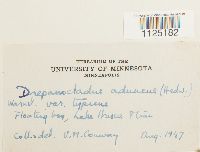 1125182
HERBARIUM OF THE
UNIVERSITY OF MINNESOTA
MINNEAPOLIS
Drepanocladus aduncus (Hedw.)
Warnst. var. typicus
Floating bog, Lake Hugo
Coll. & det. V. M. Conway Aug. 1947